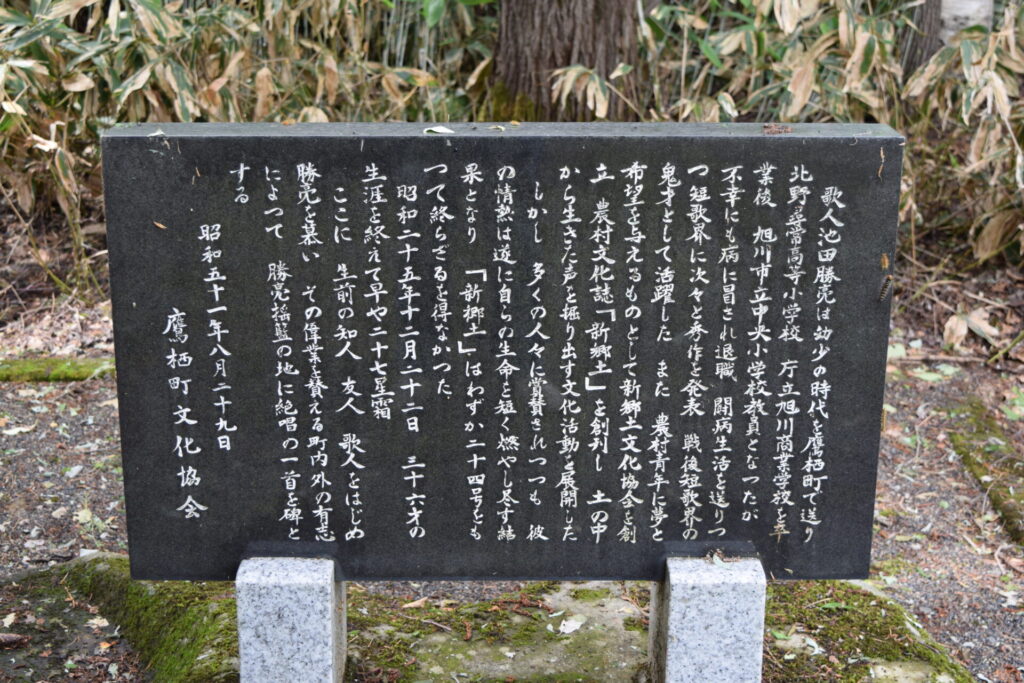 歌人池田勝亮は幼少の時代を鷹栖町で送り
北野尋常高等小学校　庁立旭川商業学校を卒
業後　旭川市立中央小学校教員となつたが
不幸にも病に冒され退職　闘病生活を送りつ
つ短歌界に次々と秀作を発表　戦後短歌界の
鬼才として活躍した　また　農村青年に夢と
希望を与えるものとして新郷土文化協会を創
立　農村文化誌「新郷土」を創刊し　土の中
から生きた声を掘り出す文化活動を展開した
しかし　多くの人々に賞賛されつつも　彼
の情熱は遂に自らの生命を短く燃やし尽す結
果となり　「新郷土」はわずか二十四号をも
つて終らざるを得なかつた
昭和二十五年十二月二十二日　三十六才の
生涯を終えて早や二十七星霜
ここに　生前の知人　友人　歌人をはじめ
勝亮を慕い　その偉業を賛える町内外の有志
によつて　勝亮揺籃の地に絶唱の一首を碑と
する
昭和五十一年八月二十九日
鷹栖町文化協会